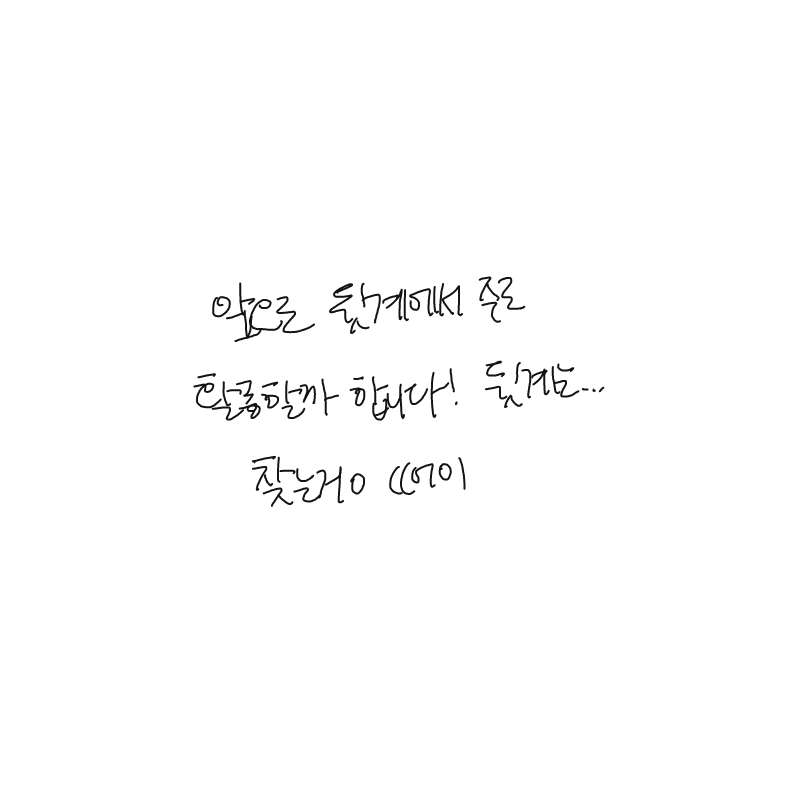 앞으로 뒸계에서 주로
활용할까 합니다! 뒸계는...
찾는거ㅇ ((에이